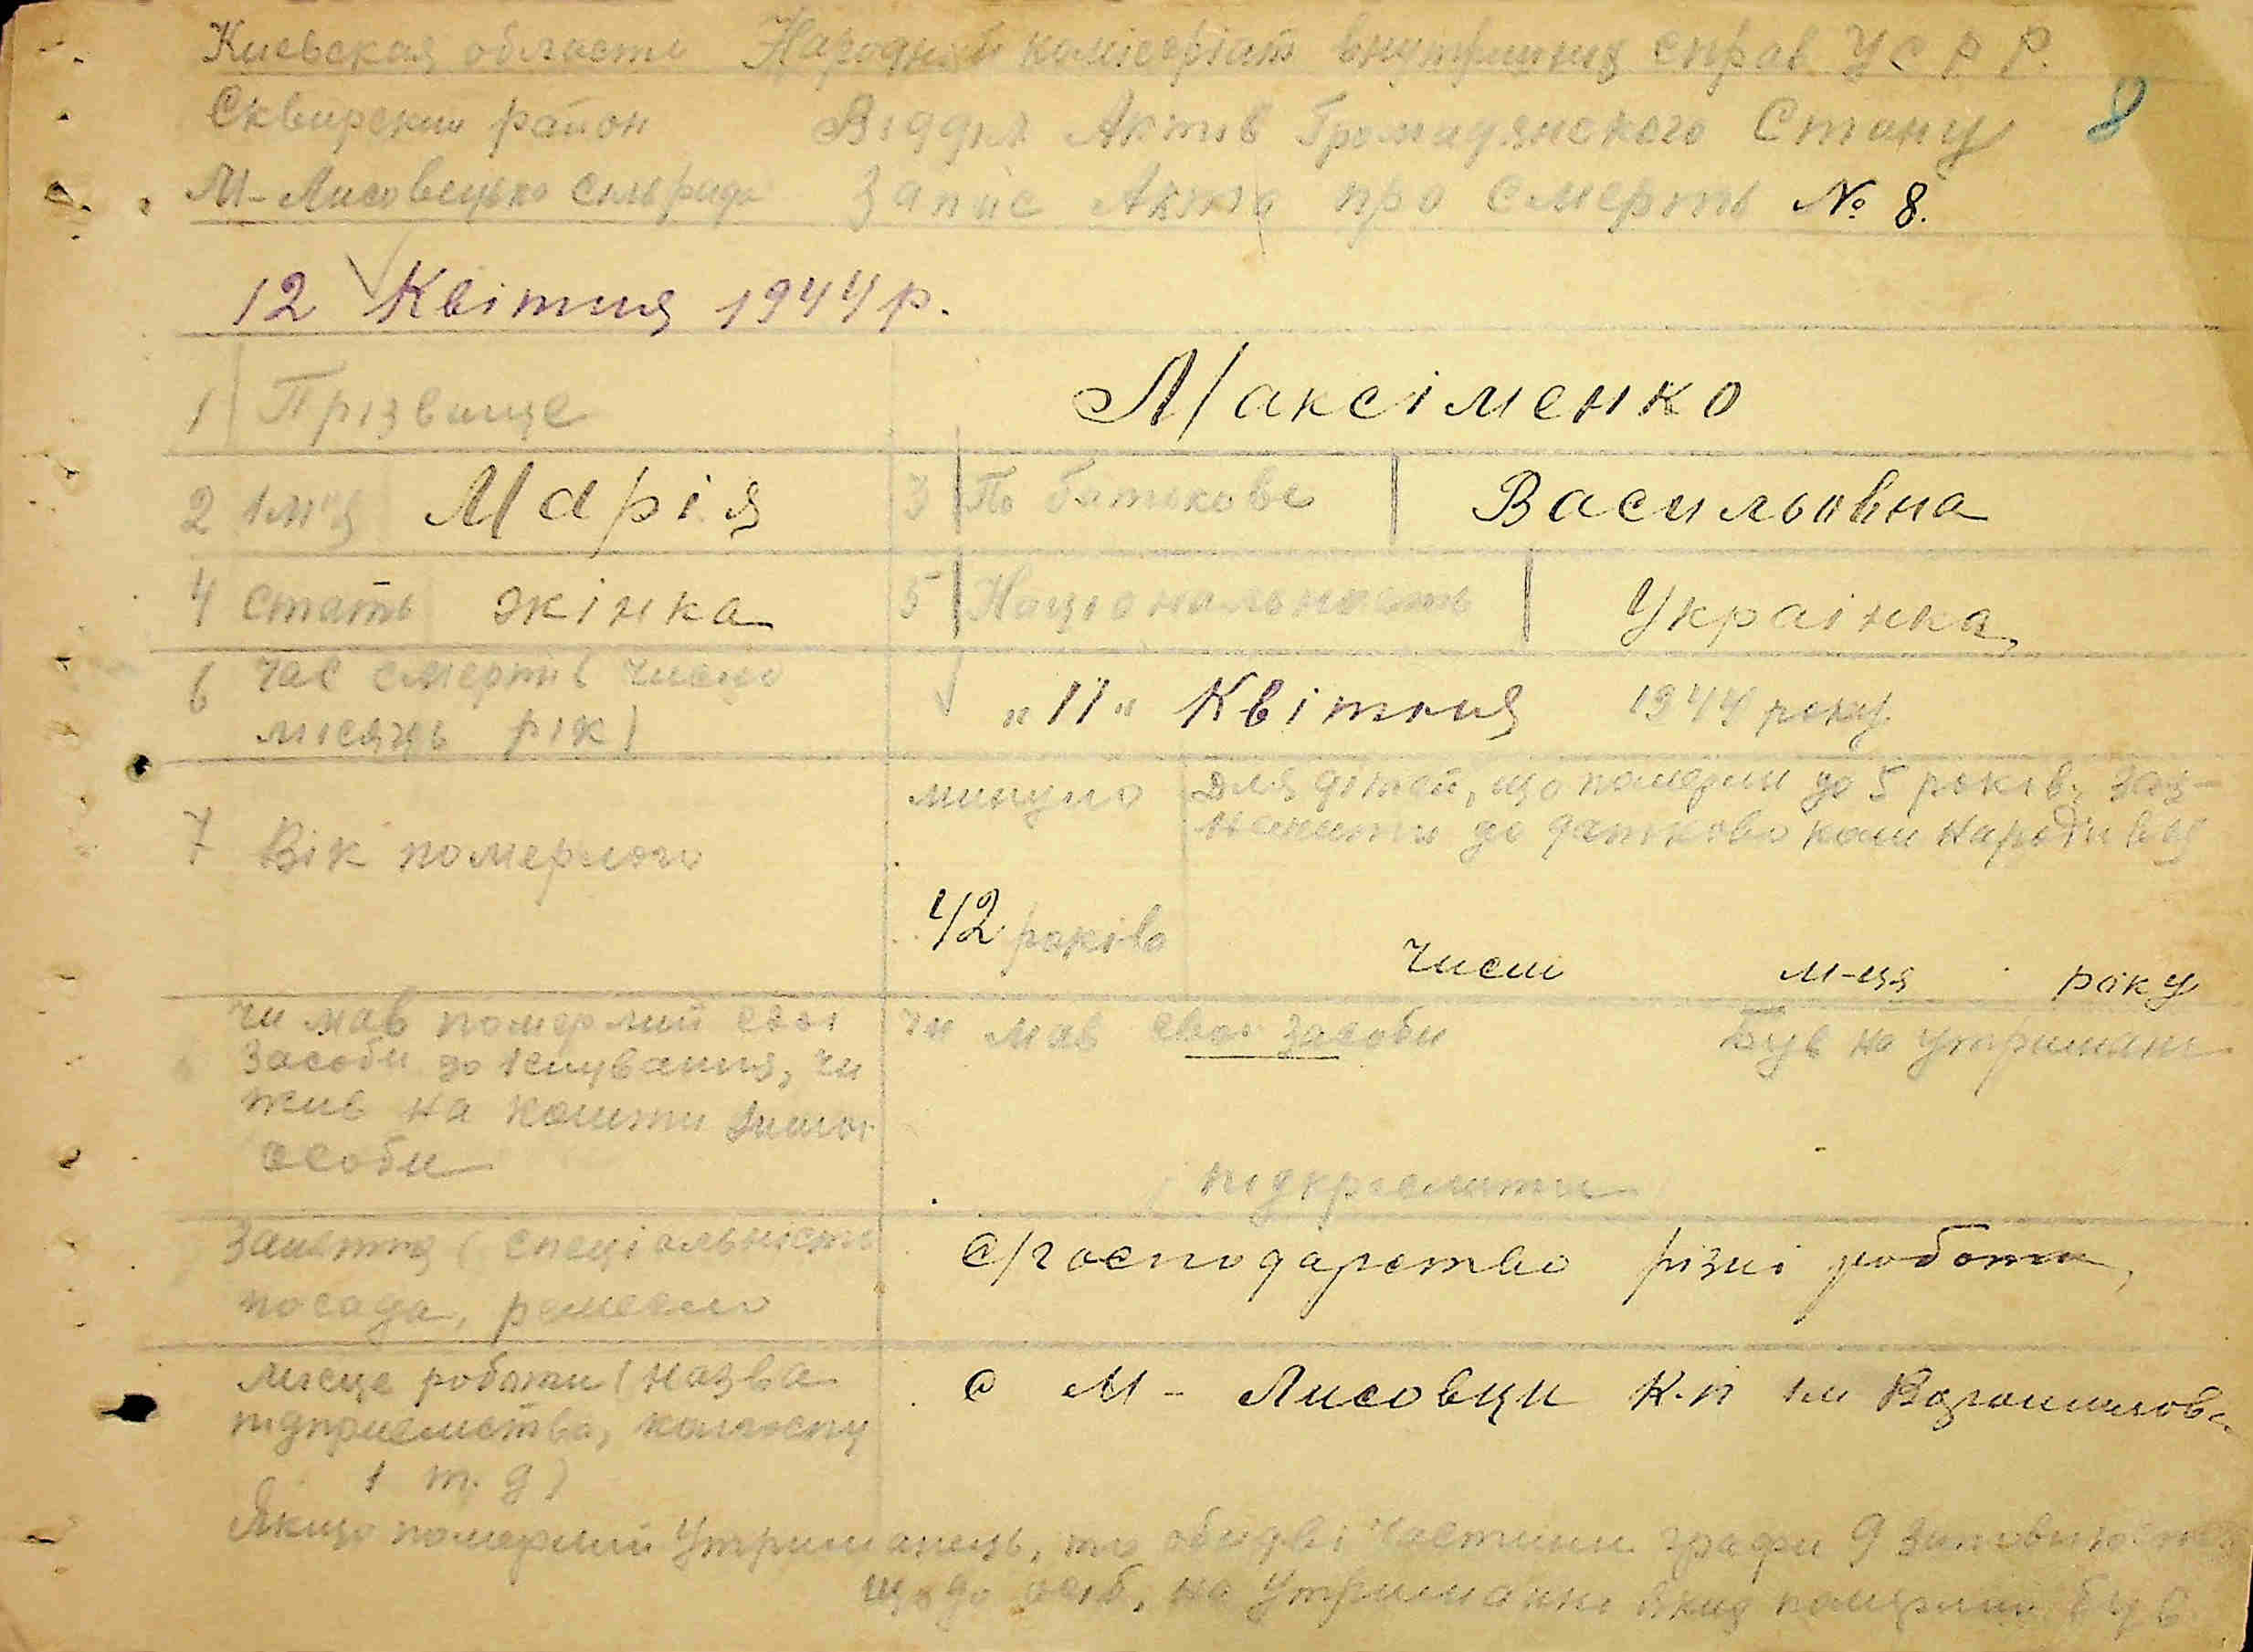 Киевская область Народний комісеріат внутришних справ УСРР.
Сквирский район Відділ Актів Громадянского Стану 8
М-Лисовецька сільрада Запис Акта про смерть № 8.
12 Квітня 1944 р.
1 Прізвище Максіменко
2 Імʼя Марія 3 По батькове Васильовна
4 стать жінка 5 Національність Украінка
6 час смерті (число місяць рік) „11" Квітня 1944 року
7 Вік померлого минуло Для дітей, що померли до 5 років, заз-
до датково коли народився
42 років Число м-ця року
чи мав померлий своі чи мав своі засоби Був на утриман
засоби до існування, чи
жив на кошти іншоі
особи
підкреслити
Заняття (спеціальність С/господарство різні роботи,
посада, ремесло
Місце роботи (назва с М-Лисовци К.п ім Ворошилова
підприємства, колгоспу
і т. д)
Якщо померлий утриманець, то обидві частини графи 9
що до осіб, на утриманні яких померлий був